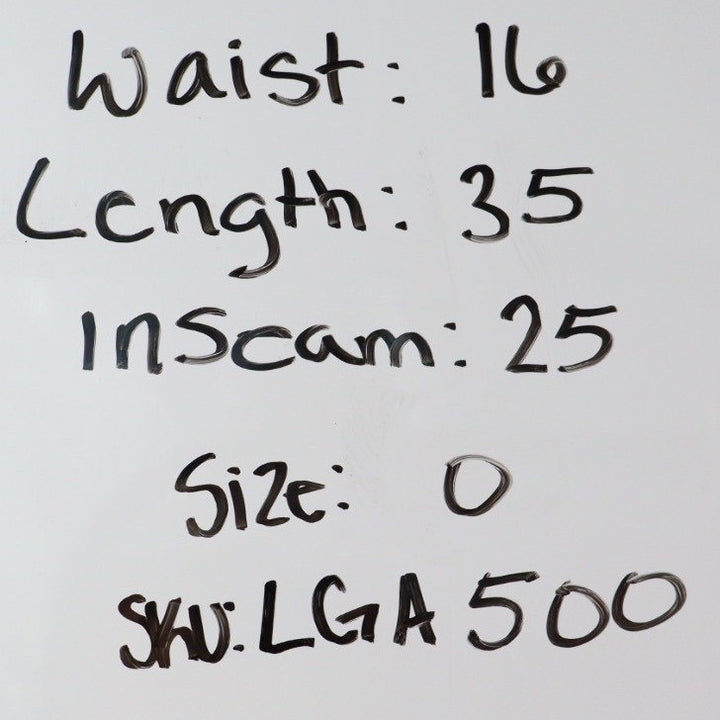 Waist: 16
Length: 35
Inseam: 25
Size: 0
SKU: LGA 500